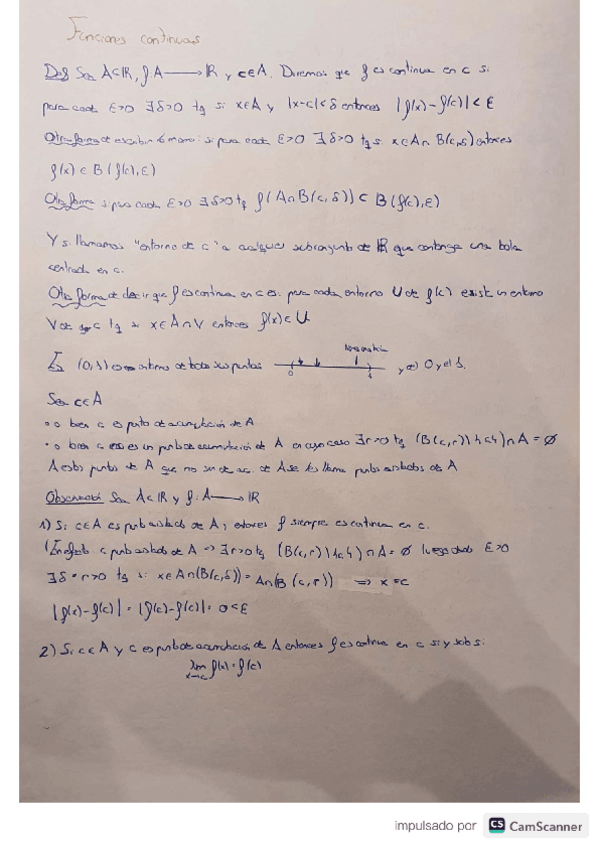 Funciones continuas
Def Sea A⊂ℝ, f: A⟶ℝ y c∈A. Diremos que f es continua en c si
para cada ε>0 ∃δ>0 tq si x∈A y |x-c|<δ entonces |f(x)-f(c)|<ε
Otra forma de escribir lo mismo: si para cada ε>0 ∃δ>0 tq si x∈A∩B(c,δ) entonces
f(x)∈B(f(c),ε)
Otra forma si para cada ε>0 ∃δ>0 tq f(A∩B(c,δ))⊂B(f(c),ε)
Y si llamamos "entorno de c" a cualquier subconjunto de ℝ que contenga una bola
centrada en c.
Otra forma de decir que f es continua en c es: para cada entorno U de f(c) existe un entorno
V de c tq si x∈A∩V entonces f(x)∈U
(0,1) es entorno de todos sus puntos 0 1 0 y el 1.
Sea c∈A
• o bien c es punto de acumulación de A
• o bien c no es un punto de acumulación de A en cuyo caso ∃r>0 tq (B(c,r)\{c})∩A=∅
A estos puntos de A que no son de ac. de A se les llama puntos aislados de A
Observación Sea A⊂ℝ y f: A⟶ℝ
1) Si c∈A es punto aislado de A, entonces f siempre es continua en c.
(En efecto c punto aislado de A ⇒ ∃r>0 tq (B(c,r)\{c})∩A=∅ luego dado ε>0
∃δ=r>0 tq si x∈A∩(B(c,δ))=A∩(B(c,r)) ⇒ x=c
|f(x)-f(c)|=|f(c)-f(c)|=0<ε
2) Si c∈A y c es punto de acumulación de A entonces f es continua en c si y solo si
lim x→c f(x)=f(c)
impulsado por CS CamScanner